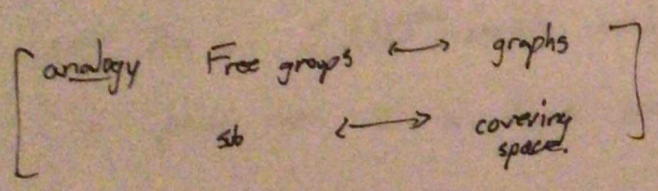 [ analogy Free groups ↔ graphs ]
sub ↔ covering
space.